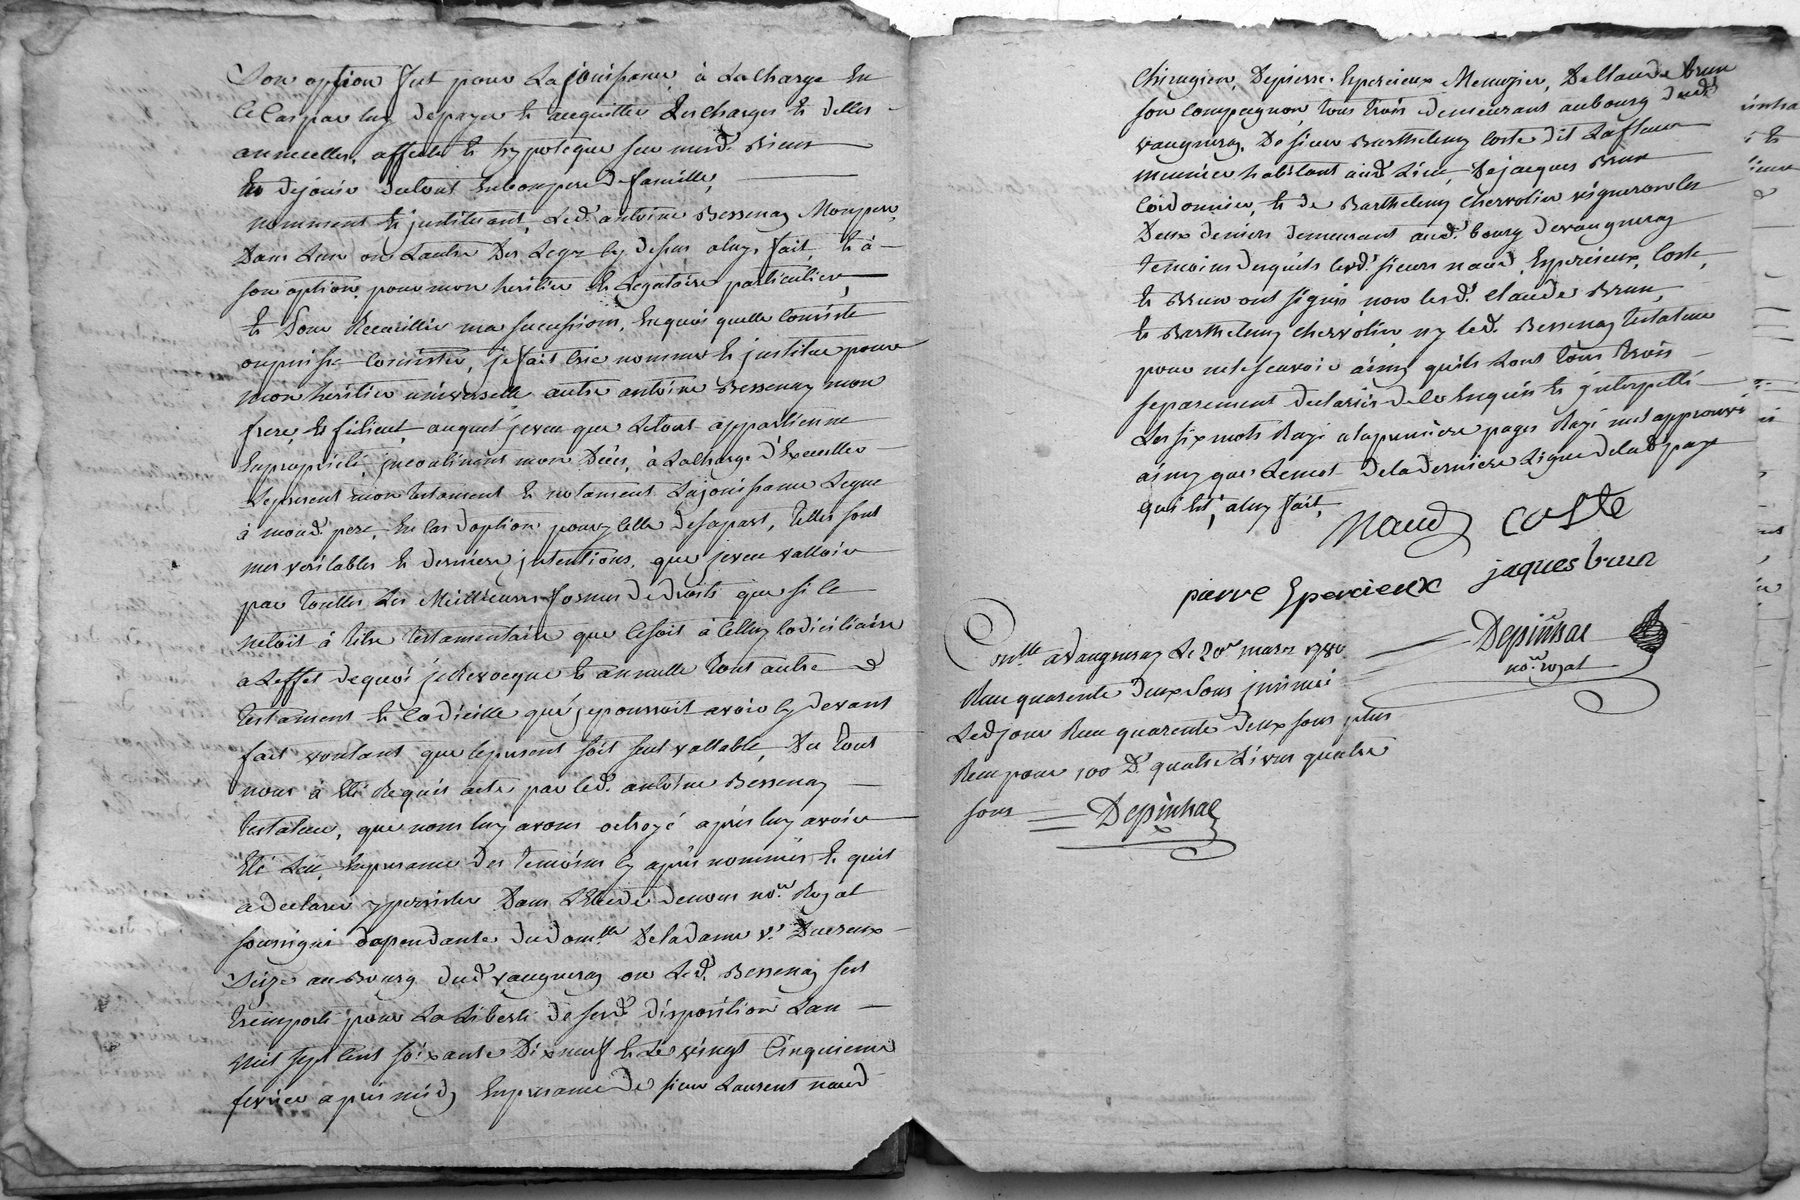 Son option fut pour la jouissance à la charge en
ce cas par luy de payer et acquitter les charges et dettes
annuelles, affectés et hypotéque sur mesd. Biens
et de jouir du tout en bon pere de famille,
nomment et instituant, led. antoine Bessenay Mon pere
Dans l'un ou l'autre Des Legs cy dessus a luy fait et à
son option, pour mon heritier et Legataire particulier,
et Pour Recueillir ma sucussions, en quoi quelle consiste
ou puisse consister, je fait crée nomme et justitue pour
mon héritier universelle autre antoine Bessenay mon
frere, et filieul, auquel je veu que le tout appartienne
en propriété, incontinent mon Décés, à la charge d'Executter
le present mon testament et notament la jouissance legué
à mond. pere, en cas d'option pour icelle de sa part, telles sont
mes veritables et derniere intentions, que je veu valloir
par toutes les Meillieures formes de droits que si ce
n'etoit à titre testamentaire que ce soit à celluy codiciliaire
a l'effet de quoi je Revocque et annulle tout autre
testament et codicille que je pourroit avoir cy devant
fait voulant que le present soit seul vallable, Du tout
nous à été Requis acte par led. antoine Bessenay
testateur, que nous luy avons octroyé après luy avoir
été Lu, en presance des temoins cy après nommés et quil
a declarer y persister Dans l'Etude de nous no.re Royal
soussigné dependante du dom.lle de la dame v.e Ducreux
size au Bourg dud. vaugneray ou led. Bessenay sest
transporté pour la liberté de sesd. disposition L'an
mil sept cent soixante Dix neuf et le vingt cinquieme
fevrier après midy en presance de sieur Laurent naud
Chirugien, De pierre Espercieux Menuzier, De Claude Brun
son compagnon, tous trois demeurant au bourg dud.
vaugneray, De sieur Barthelemy Coste dit Lafleur
meunier habitant aud. Lieu, De jacques Brun
Cordonnier, et de Barthelemy Chervolin vigneron les
Deux derniers demeurant aud. bourg de vaugneray
temoins desquels lesd. sieurs naud, Espercieux, Coste,
et Brun ont signés non lesd. Claude Brun,
et Barthelemy Chervolin, ny led. Bessenay testateur
pour ne le scavoir ainsy quils l'ont tous trois
separement declarés de ce enquis et jnterpellés
Les six mots Rayé a la premiere pages Rayé mes approuvé
ainsy que le mot de la derniere Ligne de la page
qui est, a luy fait,
Naud COSTe
pierre Espercieux jaques brun
Depinhac
no.re royal
Con.lle a Vaugneray Le 20.e mars 1780
Reçu quarente deux sous jnsinué
Led jour Reçu quarente deux sous plus
Reçu pour 100 D. quatre Livres quatre
sous Depinhac